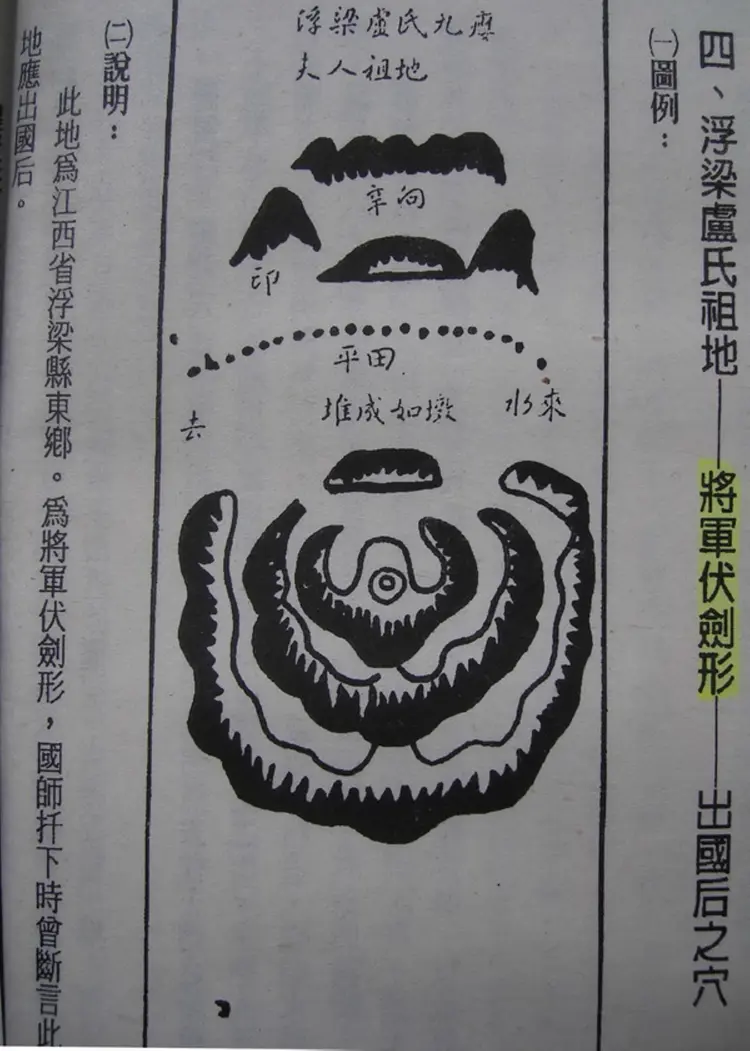 四、浮梁盧氏祖地——將軍伏劍形——出國后之穴
㈠圖例：
浮梁盧氏九癭
夫人祖地
辛向
印
平田
水來
堆成如墩
去
㈡說明：
此地爲江西省浮梁縣東鄉。爲將軍伏劍形，國師扦下時曾斷言此
地應出國后。